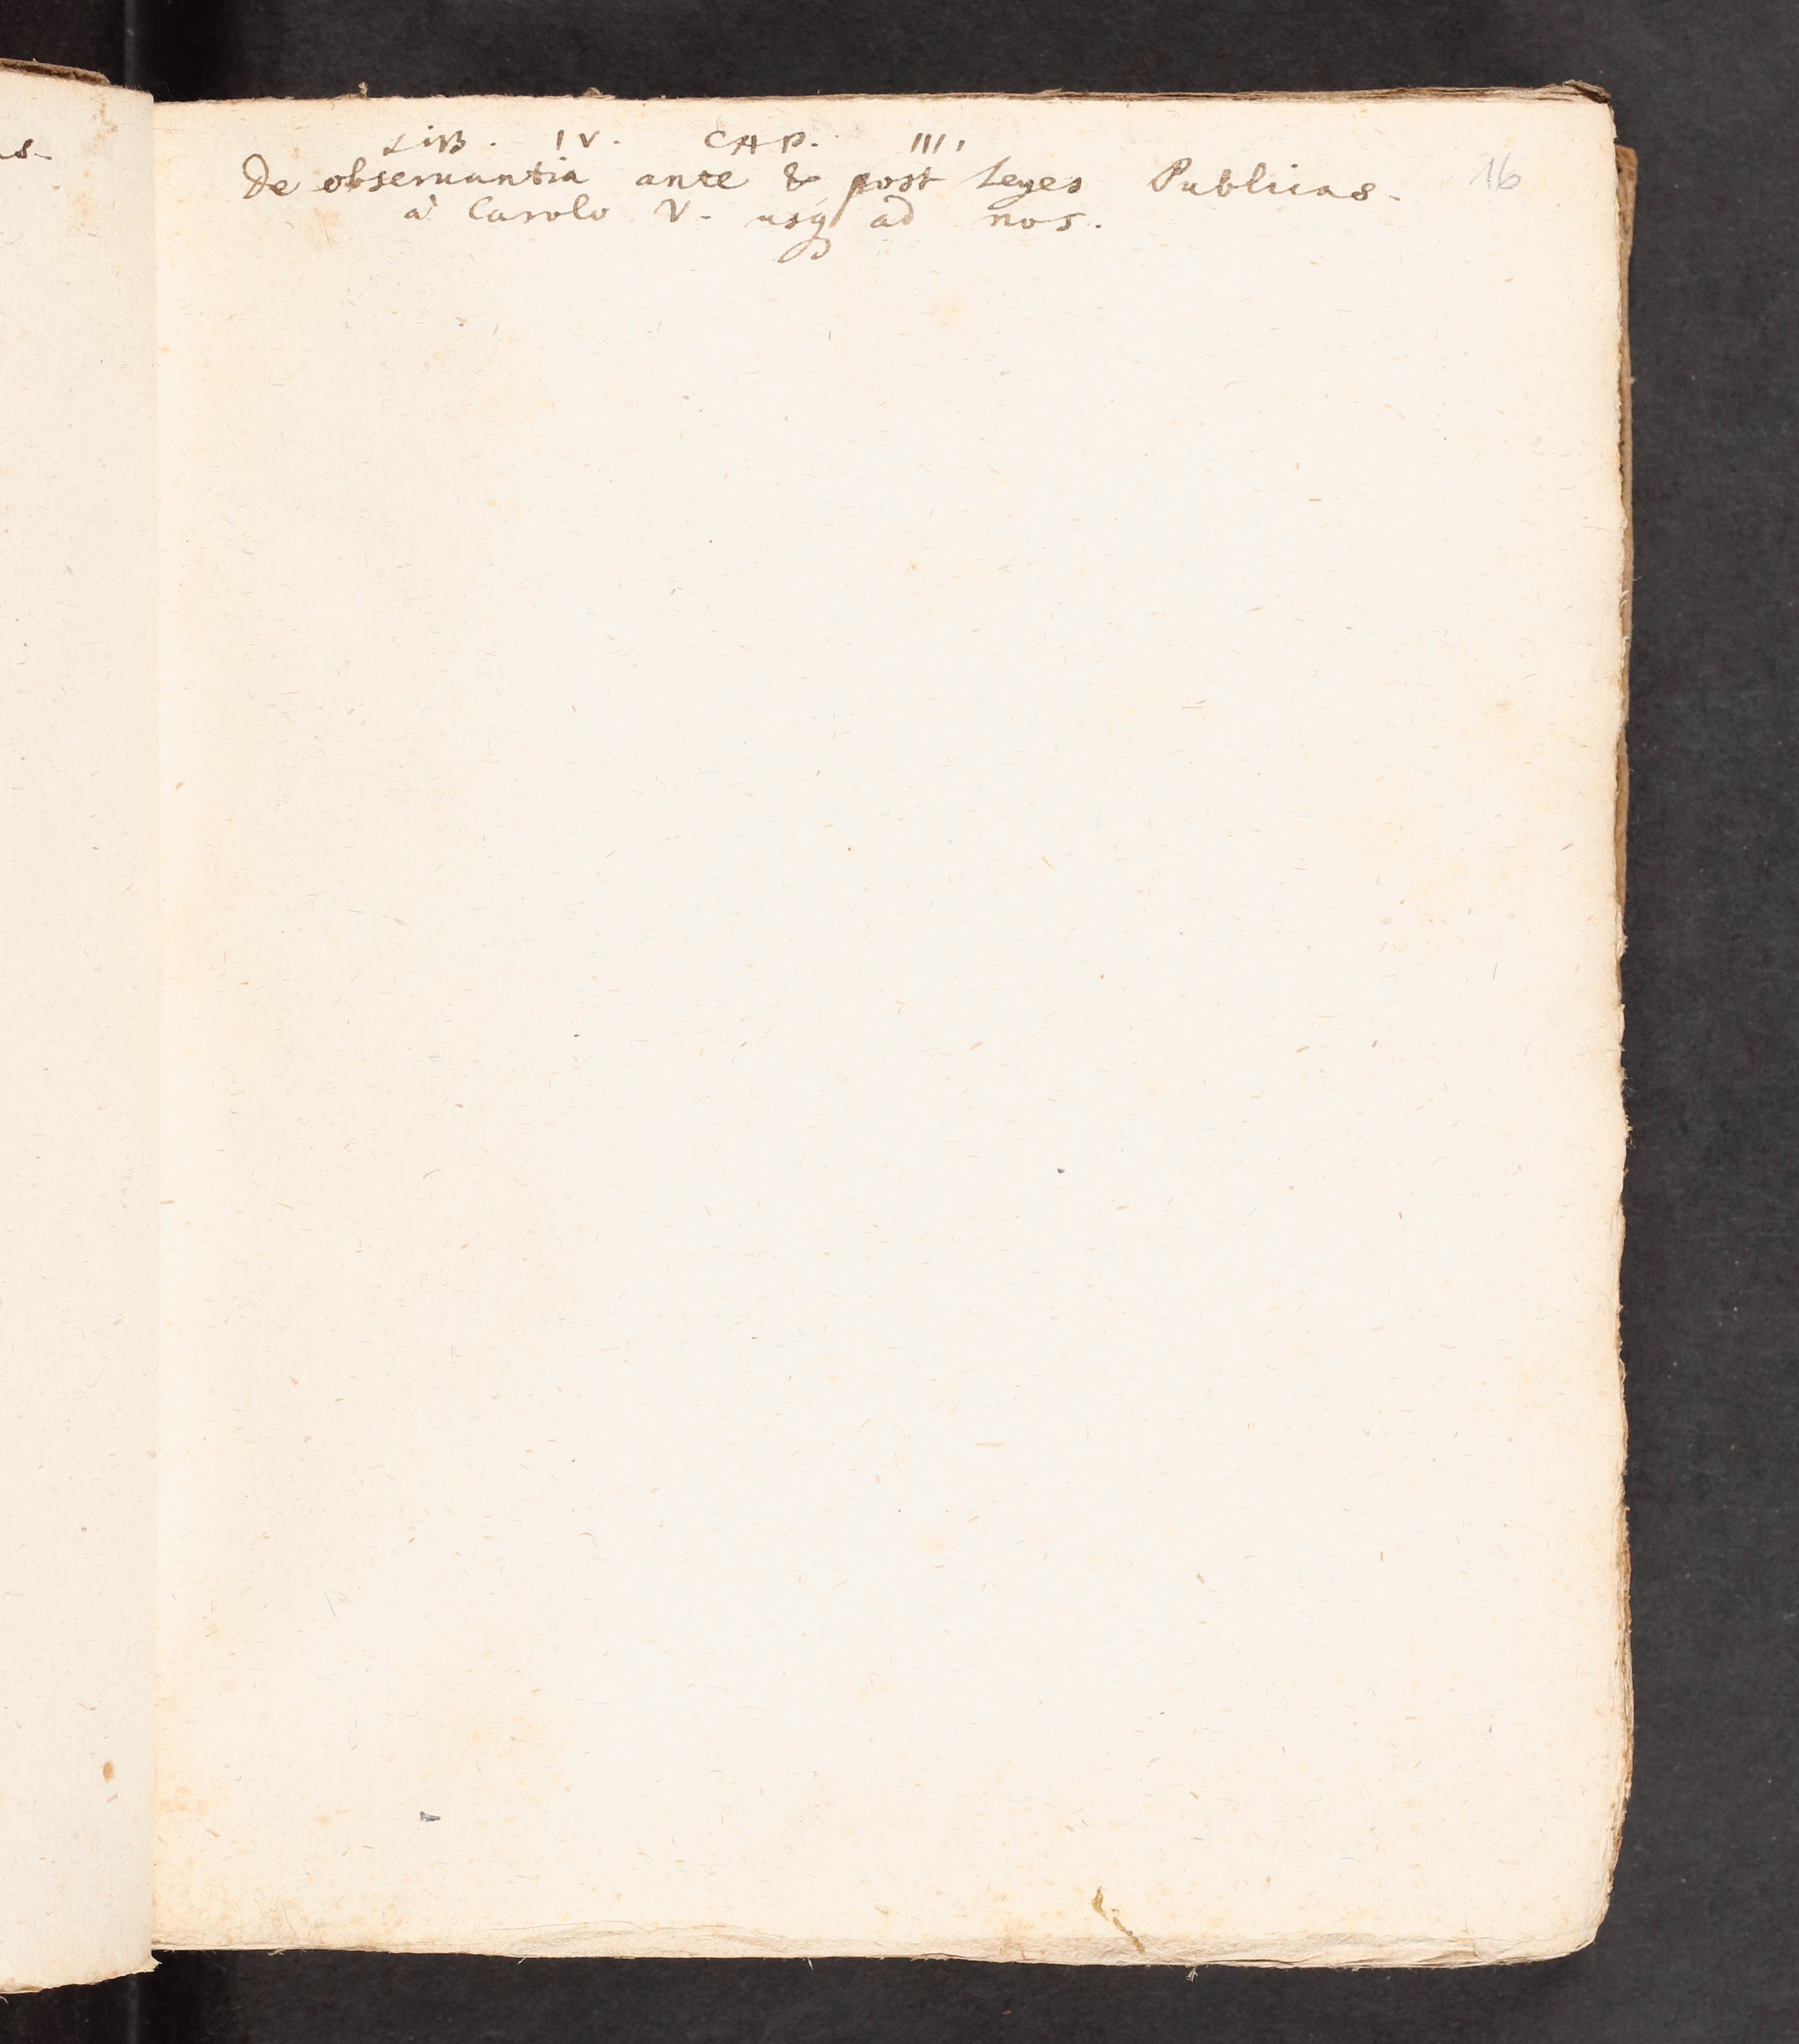 LIB. IV. CAP. IIII.
De obseruantia ante & post Leges Publicas.
à Carolo V. usq ad nos.
16